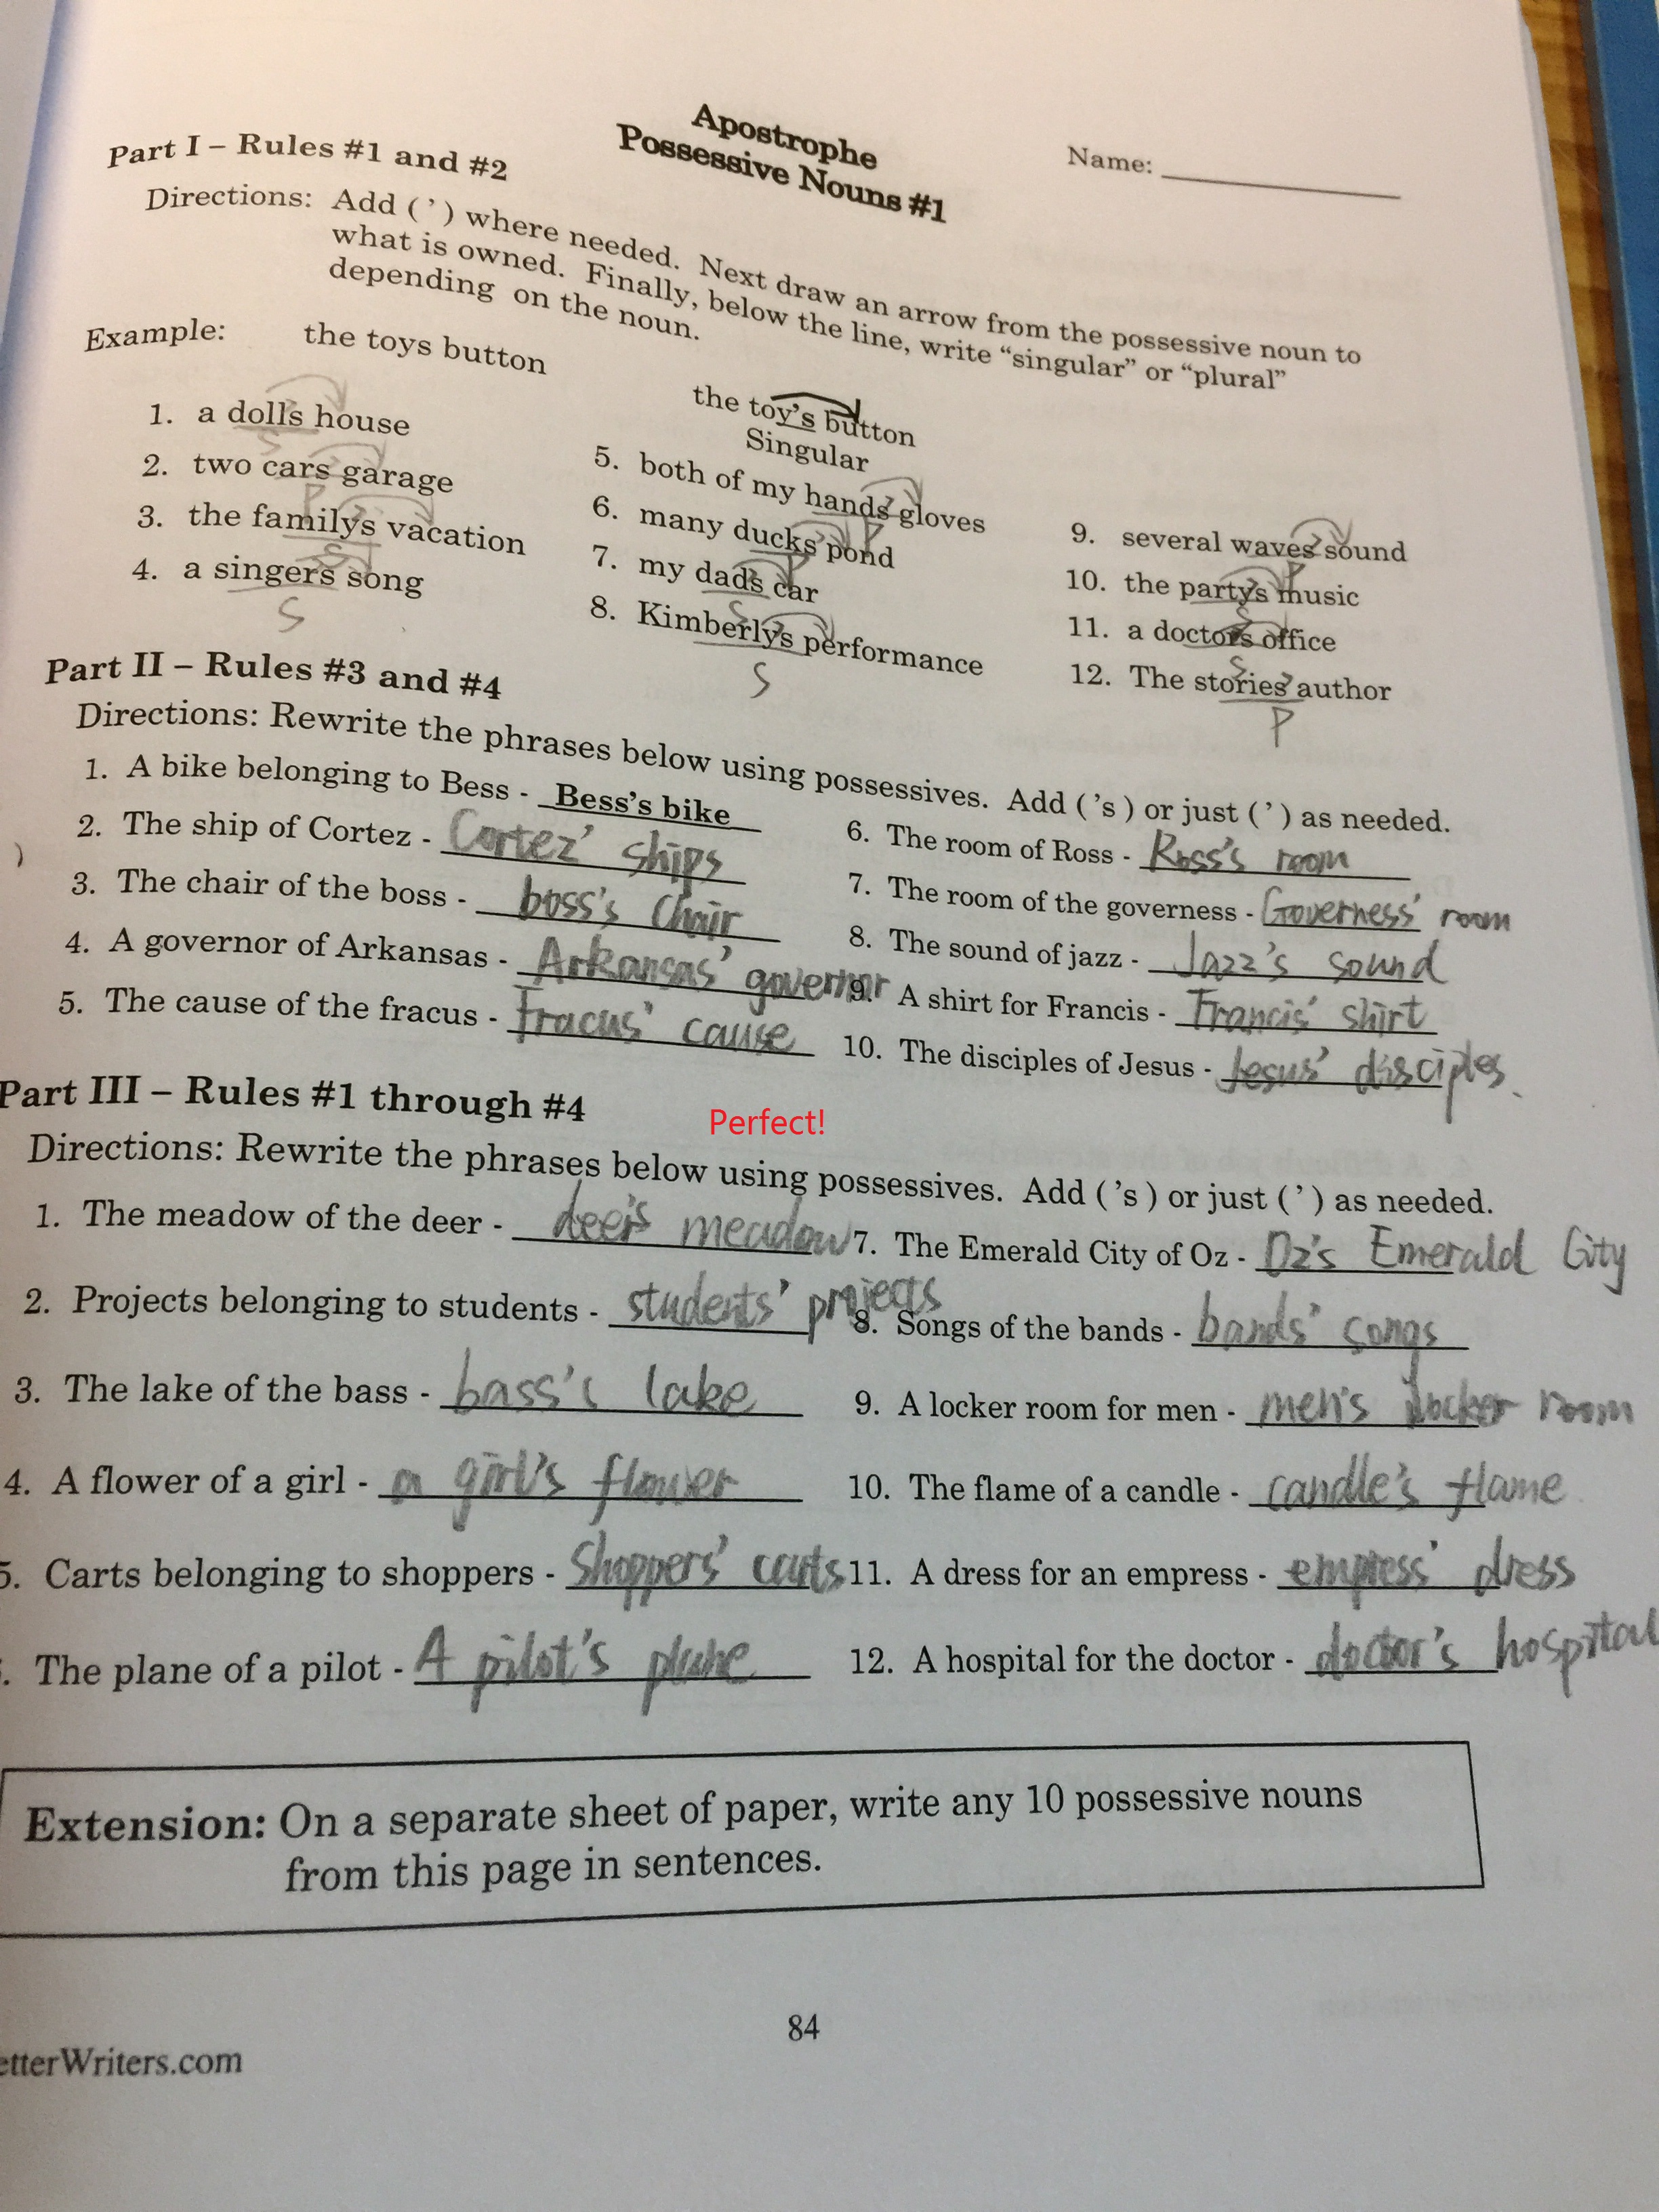 Apostrophe
Possessive Nouns #1
Name:
Part I – Rules #1 and #2
Directions: Add ( ’ ) where needed. Next draw an arrow from the possessive noun to
what is owned. Finally, below the line, write “singular” or “plural”
depending on the noun.
Example: the toys button
the toy’s button
Singular
1. a dolls’ house
S
2. two cars’ garage
P
3. the family’s vacation
S
4. a singer’s song
S
5. both of my hands’ gloves
P
6. many ducks’ pond
P
7. my dad’s car
S
8. Kimberly’s performance
S
9. several waves’ sound
P
10. the party’s music
S
11. a doctor’s office
S
12. The stories’ author
P
Part II – Rules #3 and #4
Directions: Rewrite the phrases below using possessives. Add ( ’s ) or just ( ’ ) as needed.
1. A bike belonging to Bess - Bess’s bike
2. The ship of Cortez - Cortez’ ships
3. The chair of the boss - boss’s Chair
4. A governor of Arkansas - Arkansas’ governor
5. The cause of the fracus - Fracus’ cause
6. The room of Ross - Ross’s room
7. The room of the governess - Governess’ room
8. The sound of jazz - Jazz’s sound
9. A shirt for Francis - Francis’ shirt
10. The disciples of Jesus - Jesus’ disciples.
Part III – Rules #1 through #4
Perfect!
Directions: Rewrite the phrases below using possessives. Add ( ’s ) or just ( ’ ) as needed.
1. The meadow of the deer - deer’s meadow
2. Projects belonging to students - students’ projects
3. The lake of the bass - bass’s lake
4. A flower of a girl - a girl’s flower
5. Carts belonging to shoppers - Shoppers’ carts
. The plane of a pilot - A pilot’s plane
7. The Emerald City of Oz - Oz’s Emerald City
8. Songs of the bands - bands’ songs
9. A locker room for men - men’s locker room
10. The flame of a candle - candle’s flame
11. A dress for an empress - empress’ dress
12. A hospital for the doctor - doctor’s hospital
Extension: On a separate sheet of paper, write any 10 possessive nouns
from this page in sentences.
84
etterWriters.com